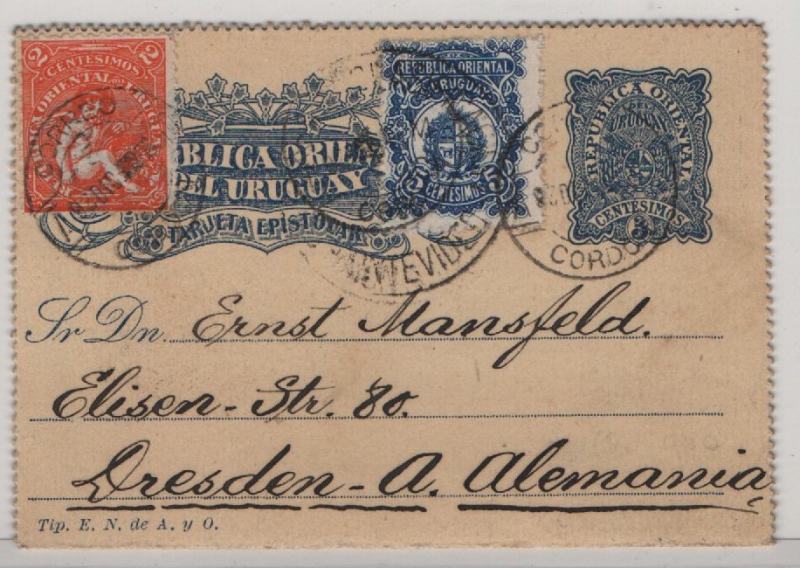 2 2
CENTESIMOS
ORIENTAL DEL URUGUAY
REPUBLICA ORIENTAL
URUGUAY
5 CENTESIMOS 5
REPUBLICA ORIENTAL
URUGUAY
CENTESIMOS
3
BLICA ORIEN
DEL URUGUAY
TARJETA EPISTOLAR
CORDO
MONTEVIDEO
Sr Dn. Ernst Mansfeld.
Elisen-Str. 80.
Dresden-A. Alemania
Tip. E. N. de A. y O.